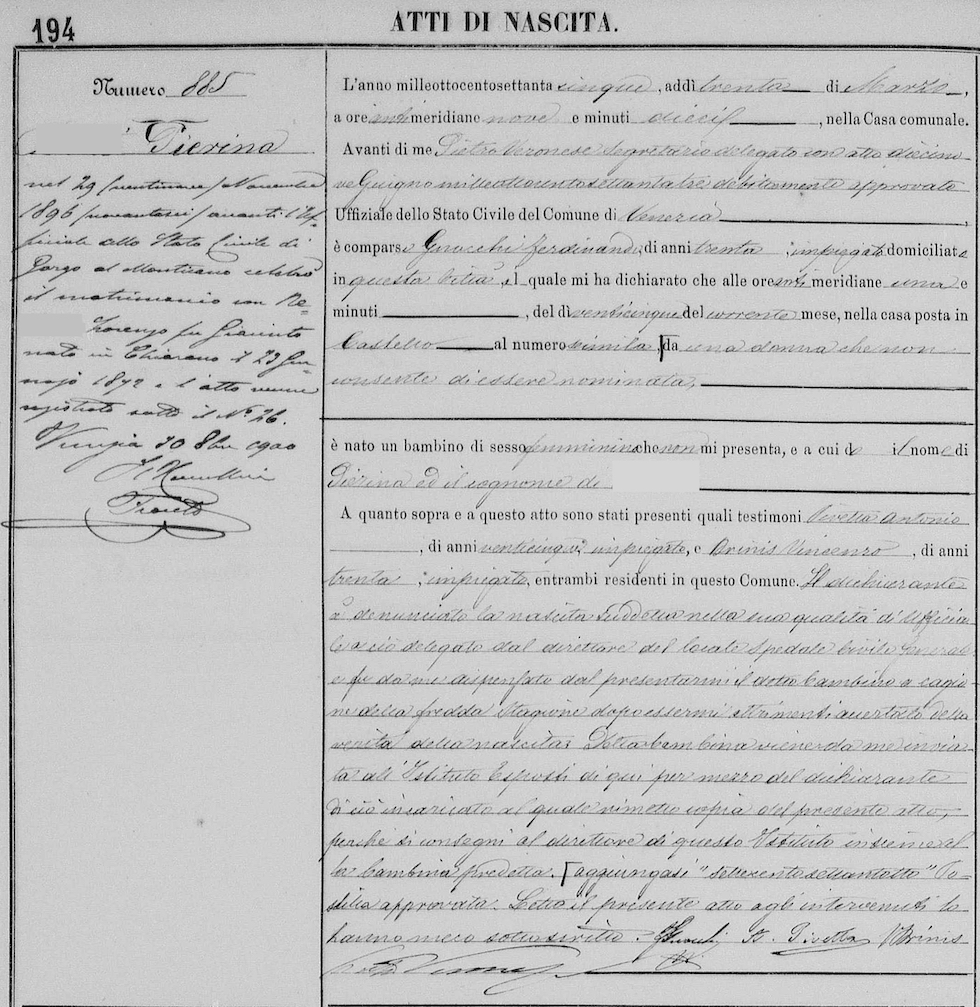 194
ATTI DI NASCITA.
Numero 885
Pierina
nel 29 (ventinove) Novembre
1896 (novantasei) avanti l'Uf-
ficiale dello Stato Civile di
Gorgo al Monticano celebrò
il matrimonio con Re-
Lorenzo fu Giacinto
nato in Chiarano il 23 Gen-
najo 1872 e l'atto venne
registrato sotto il No 26.
Venezia 30 8bre 1900
L'anno milleottocentosettanta cinque, addì trenta di Marzo,
a ore anti meridiane nove e minuti dieci, nella Casa comunale.
Avanti di me Pietro Veronese Segretario delegato con atto diecino
ve Giugno milleottocentosettantatre debitamente approvato
Uffiziale dello Stato Civile del Comune di Venezia,
è comparso Gnocchi Ferdinando, di anni trenta, impiegato domiciliato
in questa Città, il quale mi ha dichiarato che alle ore anti meridiane una e
minuti, del dì venticinque del corrente mese, nella casa posta in
Castello al numero seimila, [da una donna che non
consente di essere nominata,
è nato un bambino di sesso femminino che non mi presenta, e a cui do il nome di
Pierina ed il cognome di
A quanto sopra e a questo atto sono stati presenti quali testimoni Pivetta Antonio
, di anni venticinque, impiegato, e Brinis Vincenzo, di anni
trenta, impiegato, entrambi residenti in questo Comune. Il dichiarante
à denunciato la nascita suddetta nella sua qualità di Ufficia
le a ciò delegato dal direttore del locale Spedale Civile Generale
e fu da me dispensato dal presentarmi il detto bambino a cagio
ne della fredda stagione dopo essermi altrimenti accertato della
verità della nascita. Detta bambina viene da me invia-
ta all'Istituto Esposti di qui per mezzo del dichiarante
di ciò incaricato al quale rimetto copia del presente atto,
perché si consegni al direttore di questo Istituto insieme al
la bambina predetta. [aggiungasi "settecentosettantotto" Po-
stilla approvata. Letto il presente atto agli intervenuti lo
hanno meco sottoscritto. A. Pivetta V Brinis